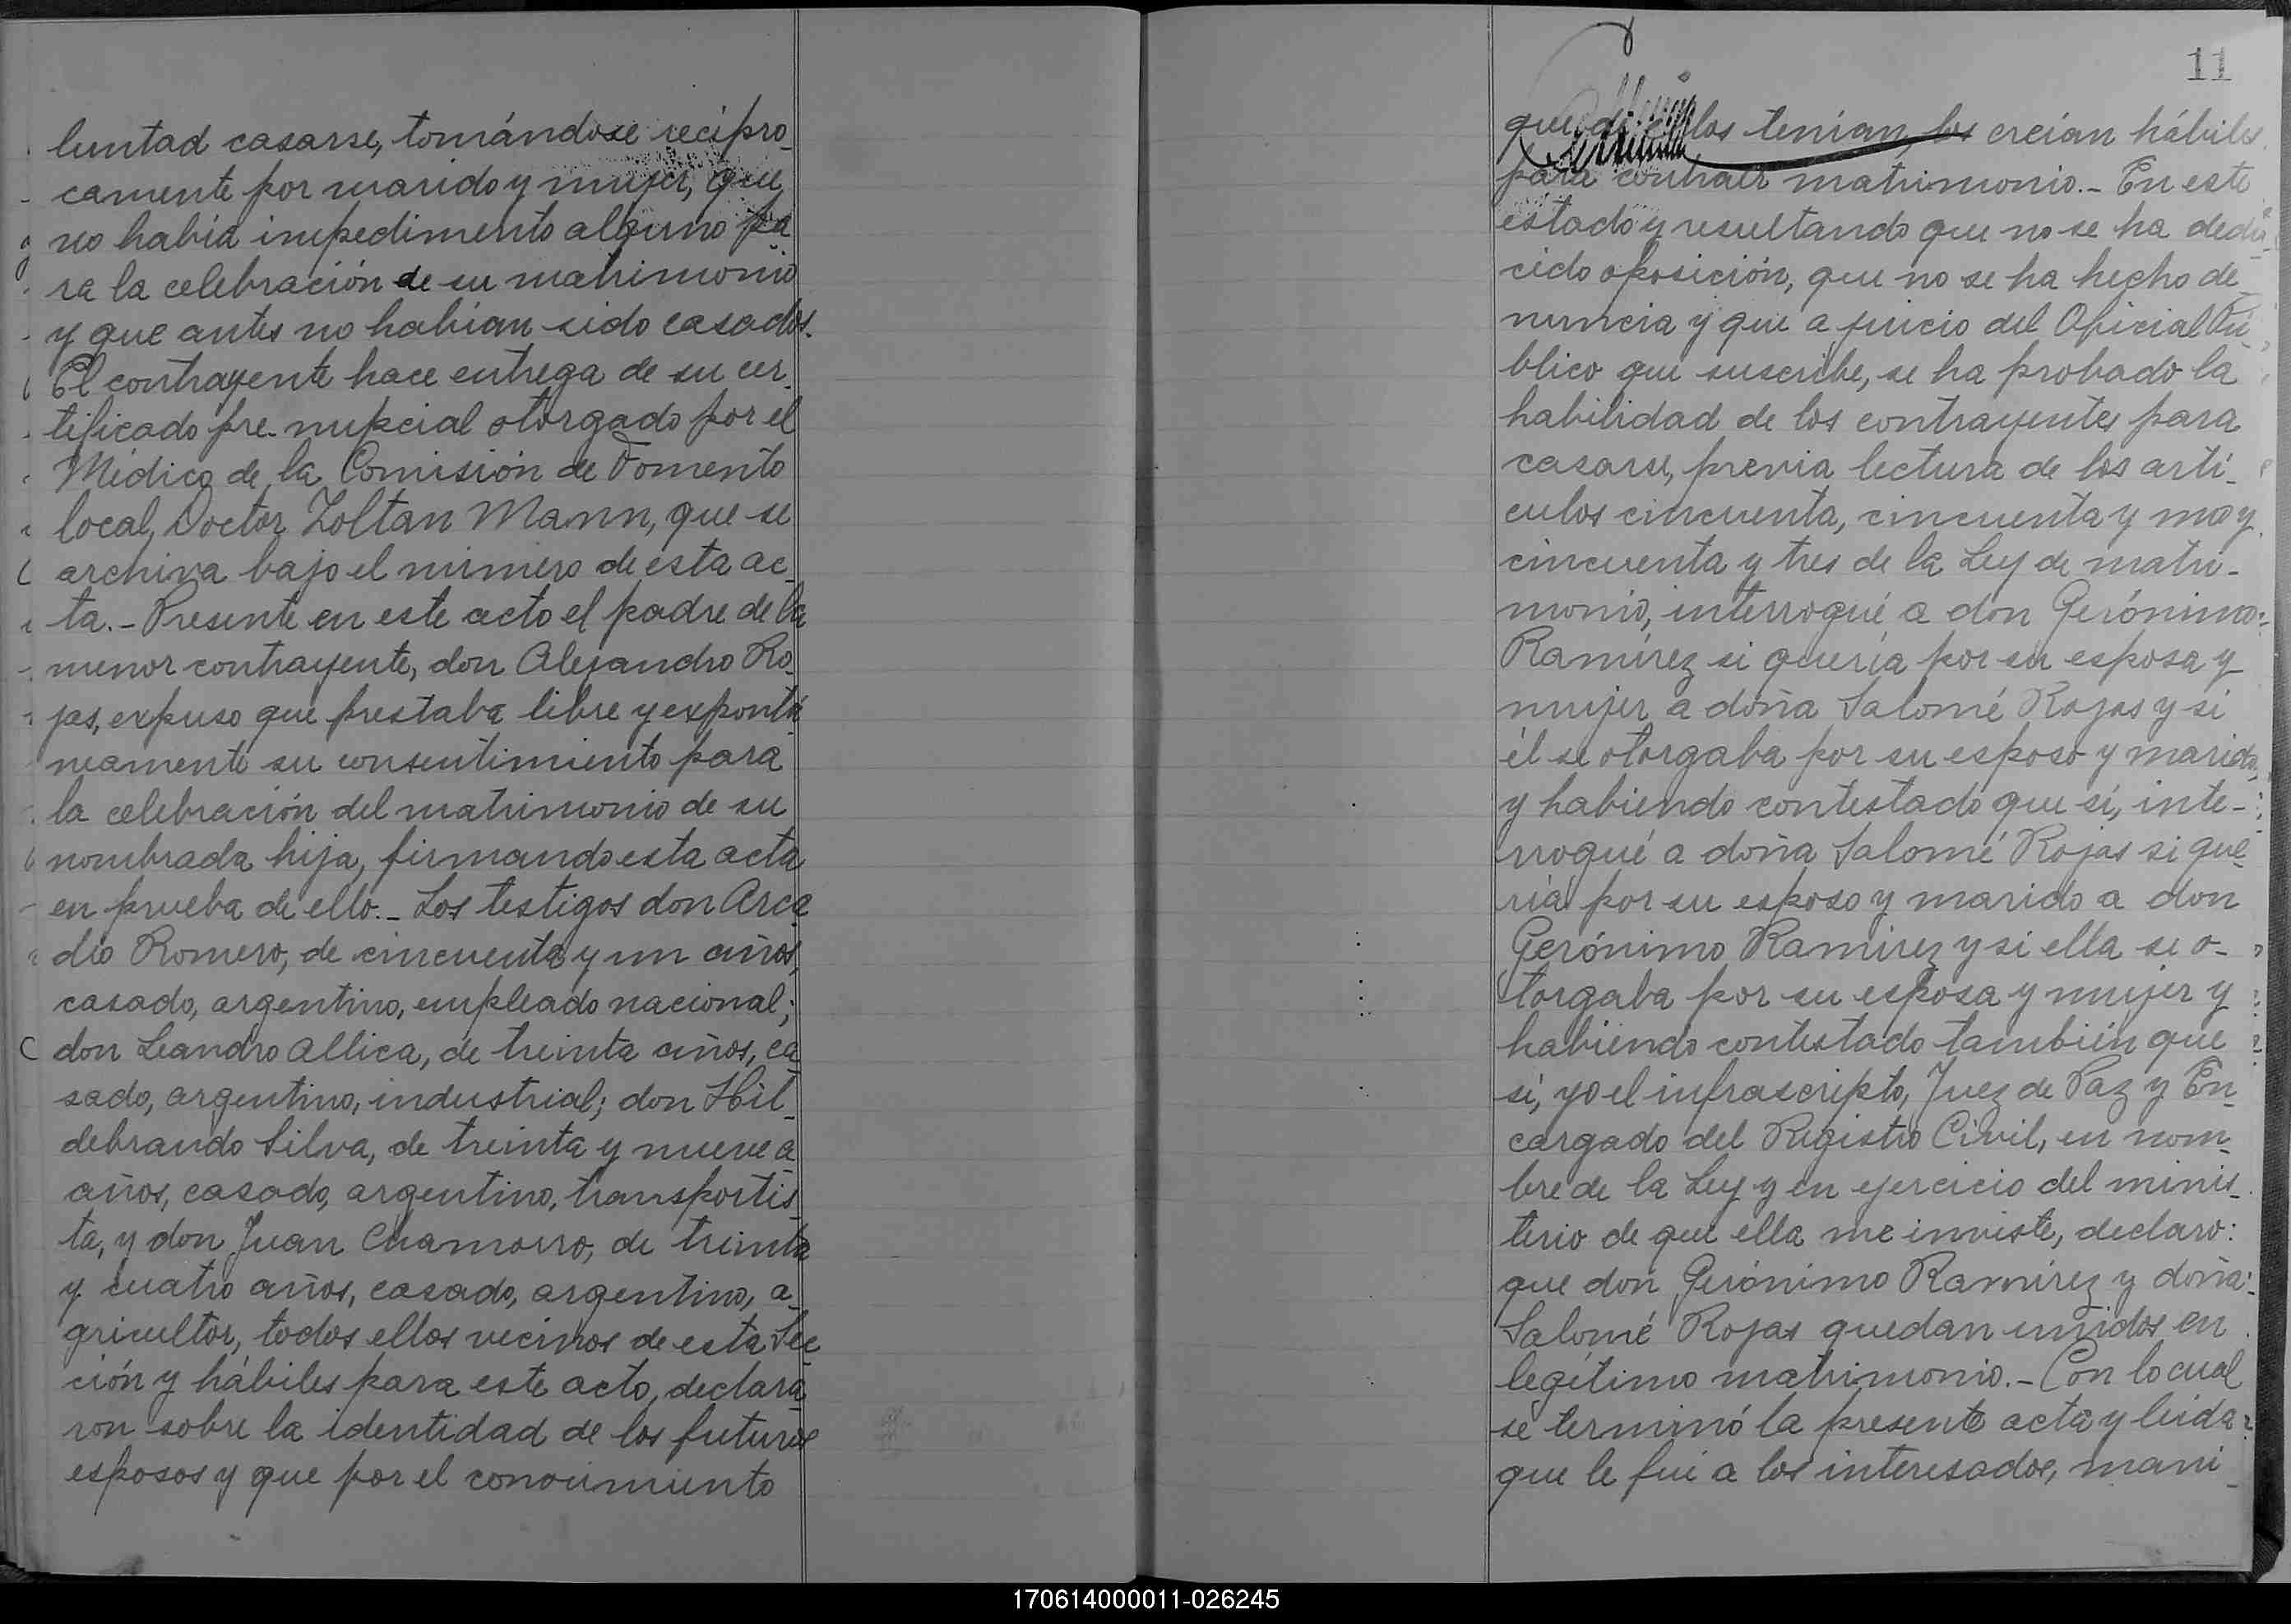 luntad casarse, tomándose recipro_
camente por marido y mujer, que
no había impedimento alguno pa_
ra la celebración de su matrimonio
y que antes no habían sido casados.
El contrayente hace entrega de su cer_
tificado pre-nupcial otorgado por el
Médico de la Comisión de Fomento
local, Doctor Zoltan Mann, que se
archiva bajo el número de esta ac_
ta.- Presente en este acto el padre de la
menor contrayente, don Alejandro Ro_
jas, expuso que prestaba libre y expontá_
neamente su consentimiento para
la celebración del matrimonio de su
nombrada hija, firmando esta acta
en prueba de ello.- Los testigos don Arca_
dio Romero, de cincuenta y un años,
casado, argentino, empleado nacional;
don Leandro Allica, de treinta años, ca_
sado, argentino, industrial; don Hil_
debrando Silva, de treinta y nueve a_
años, casado, argentino, transportis_
ta, y don Juan Chamorro, de treinta
y cuatro años, casado, argentino, a_
gricultor, todos ellos vecinos de esta Sec_
ción y hábiles para este acto, declara_
ron sobre la identidad de los futuros
esposos y que por el conocimiento
11
que de ellos tenían, los creían hábiles
para contraer matrimonio.- En este
estado y resultando que no se ha dedu_
cido oposición, que no se ha hecho de_
nuncia y que a juicio del Oficial Pú_
blico que suscribe, se ha probado la
habilidad de los contrayentes para
casarse, previa lectura de los artí_
culos cincuenta, cincuenta y uno y
cincuenta y tres de la Ley de matri_
monio, interrogué a don Gerónimo
Ramírez si quería por su esposa y
mujer a doña Salomé Rojas y si
él se otorgaba por su esposo y marido,
y habiendo contestado que sí, inte_
rrogué a doña Salomé Rojas si que_
ría por su esposo y marido a don
Gerónimo Ramirez y si ella se o_
torgaba por su esposa y mujer y
habiendo contestado también que
sí, yo el infrascripto, Juez de Paz y En_
cargado del Registro Civil, en nom_
bre de la Ley y en ejercicio del minis_
terio de que ella me inviste, declaro:
que don Gerónimo Ramírez y doña
Salomé Rojas quedan unidos en
legítimo matrimonio.- Con lo cual
se terminó la presente acta y leída
que le fué a los interesados, mani_
170614000011-026245